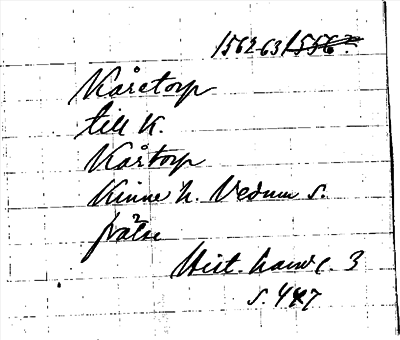 1562-63 1556
Kåretorp
till K.
Kårtorp
Kinne h. Vedum s.
frälse
Hist. handl. 3
s. 447